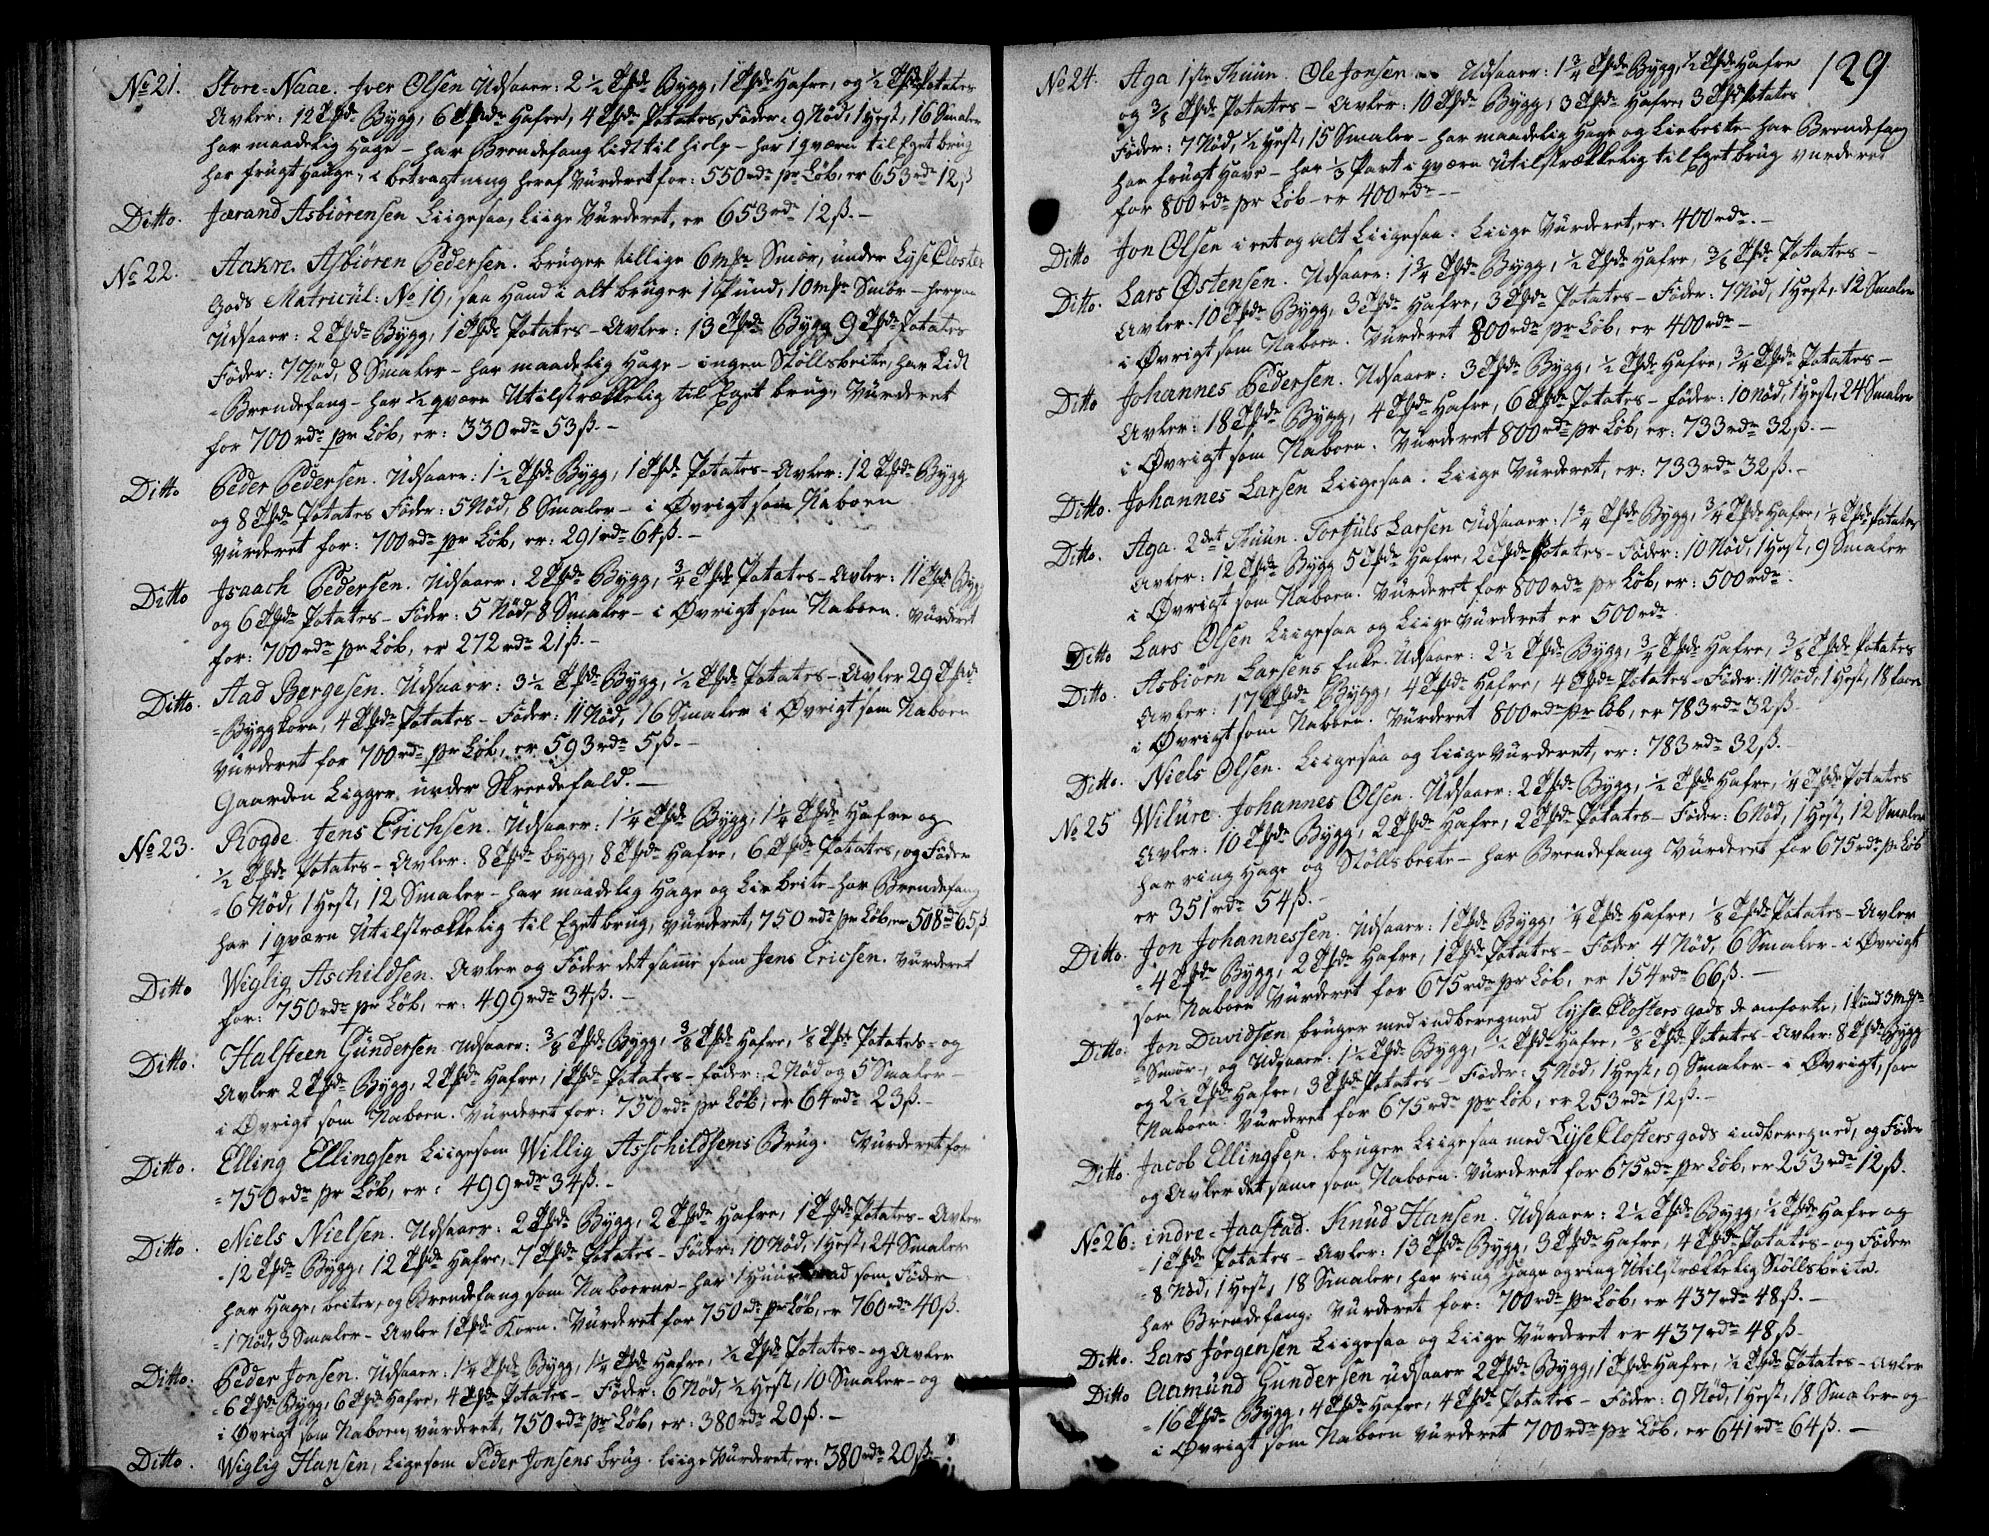 No 21. Store-Naae. Iver Olsen Udsaaer: 2½ Tønde Bygg, 1 Tønde Hafre, og ½ Tønde Potates
Avler: 12 Tønde Bygg, 6 Tønde Hafre, 4 Tønde Potates, Føder: 9 Nød, 1 Hest, 16 Smaler
har maadelig Hage – har Brendefang lidt til hielp – har 1 qværn til Eget brug
har frugt Hauge, i betragtning heraf Vürderet for: 550 rdr pr Løb, er 653 rdr 12 ß
Ditto. Jærand Asbiörensen Liigesaa, Liige Vürderet, er 653 rdr 12 ß. –
No 22. Aakre. Asbiören Pedersen. brüger tillige 6 mrk Smör, ünder Lyse Closter
Gods Matricül: No 19, saa Hand i alt brüger 1 Pünd, 10 mrk Smör – herpaa
Üdsaaer: 2 Tønde Bygg, 1 Tønde Potates – Avler: 13 Tønde Bygg 9 Tønde Potates
Føder: 7 Nød, 8 Smaler – har maadelig Hage – ingen Stöllsbeite, har Lidt
Brendefang – har ½ qværn Utilstrækkelig til Eget brug, Vürderet
for 700 rdr pr Löb, er: 330 rdr 53 ß. –
Ditto Peder Pedersen. Üdsaaer: 1½ Tønde Bygg, 1 Tønde Potates – Avler: 12 Tønde Bygg
og 8 Tønde Potates Føder: 5 Nød, 8 Smaler – i Øvrigt som Naboen
Vürderet for: 700 rdr pr Løb, er: 291 rdr 64 ß. –
Ditto Isaach Pedersen. Üdsaaer: 2 Tønde Bygg, ¾ Tønde Potates – Avler: 11 Tønde Bygg
og 6 Tønde Potates – Føder: 5 Nød, 8 Smaler – i Øvrigt som Naboen. Vürderet
for: 700 rdr pr Løb, er 272 rdr 21 ß. –
Ditto. Aad Børgesen. Üdsaaer: 3½ Tønde Bygg, ½ Tønde Potates – Avler 29 Tønde
Byggkorn, 4 Tønde Potates – Føder: 11 Nød, 16 Smaler i Øvrigt som Naboen
Vürderet for 700 rdr pr Løb, er 593 rdr 5 ß. –
Gaarden Ligger ünder Skreedefald. –
No 23. Rogde. Jens Erichsen. Üdsaaer: 1¼ Tønde Bygg, 1¼ Tønde Hafre og
½ Tønde Potates – Avler: 8 Tønde bygg, 8 Tønde Hafre, 6 Tønde Potates, og Føder
6 Nød, 1 Hest, 12 Smaler – har maadelig Hage og Liebeite – har Brendefang
har 1 qværn Utilstrækkelig til Eget brug, vürderet, 750 rdr pr Løb, er 508 rd 65 ß
Ditto Wiglig Aschildsen. Avler og Føder det samme som Jens Ericsen. Vürderet
for: 750 rdr pr Løb, er: 499 rdr 34 ß. –
Ditto. Halsteen Gündersen Udsaaer: 3/8 Tønde Bygg, 3/8 Tønde Hafre, 1/8 Tønde Potates – og
Avler 2 Tønde Bygg, 2 Tønde Hafre, 1 Tønde Potates – føder: 2 Nød og 5 Smaler –
i Øvrigt som Naboen. Vürderet for: 750 rdr pr Løb, er 64 rdr 23 ß. –
Ditto. Elling Ellingsen Liigesom Willig Asschildsens Brüg. Vürderet for
750 rdr pr Løb, er: 499 rdr 34 ß. –
Ditto. Niels Nielsen. Udsaaer: 2 Tønde Bygg, 2 Tønde Hafre, 1 Tønde Potates – Avler
12 Tønde Bygg, 12 Tønde Hafre, 7 Tønde Potates – Føder: 10 Nød, 1 Hest, 24 Smaler
har Hage, beiter, og Brendefang som Naboerne – har 1 som Føder
1 Nød, 3 Smaler – Avler 1 Tønde Korn. Vürderet for 750 rdr pr Løb, er 760 rdr 40 ß.
Ditto. Peder Jonsen. Udsaaer: 1¼ Tønde Bygg, 1¼ Tønde Hafre, ½ Tønde Potates – og Avler
6 Tønde Bygg, 6 Tønde Hafre, 4 Tønde Potates – Føder: 6 Nød, ½ Hest, 10 Smaler – og
i Øvrigt som Naboen, vürderet, 750 rdr pr Løb, er: 380 rdr 20 ß. –
Ditto. Wiglig Hansen, Ligesom Peder Jonsens brüg. Liige Vürderet, er: 380 rdr 20 ß. –
129
No 24. Aga 1ste Thüün. Ole Jonsen – Udsaaer: 1¾ Tønde Bygg, ½ Tønde Hafre
og 3/8 Tønde Potates – Avler: 10 Tønde Bygg, 3 Tønde Hafre, 3 Tønde Potates
Føder: 7 Nød, ½ Hest, 15 Smaler – har maadelig Hage og Liebeite – har Brendefang
har Frugt Have – har ⅓ Part i qværn Utilstrækkelig til Eget brug vurderet
for 800 rdr pr Løb – er 400 rdr – –
Ditto Jon Olsen i et og alt Liigesaa. Liige Vürderet, er: 400 rdr. –
Ditto. Lars Østensen. Udsaaer: 1¾ Tønde Bygg, ½ Tønde Hafre, 3/8 Tønde Potates –
Avler: 10 Tønde Bygg, 3 Tønde Hafre, 3 Tønde Potates – Føder: 7 Nød, 1 Hest, 12 Smaler
i Øvrigt som Naboen. Vürderet 800 rdr pr Løb, er 400 rdr –
Ditto Johannes Pedersen. Udsaaer: 3 Tønde Bygg, ½ Tønde Hafre, ¾ Tønde Potates –
Avler: 18 Tønde Bygg, 4 Tønde Hafre, 6 Tønde Potates – føder: 10 Nød, 1 Hest, 24 Smaler
i Øvrigt som Naboen. Vürderet 800 rdr pr Løb, er: 733 rdr 32 ß. –
Ditto. Johannes Larsen Liigesaa. Liige Vürderet, er: 733 rdr 32 ß. –
Ditto. Aga. 2det Thüün. Torkjuls Larsen Udsaaer: 1¾ Tønde Bygg, ¾ Tønde Hafre, ¼ Tønde Potates
Avler: 12 Tønde Bygg 5 Tønde Hafre, 2 Tønde Potates – Føder: 10 Nød, 1 Hest, 9 Smaler
i Øvrigt som Naboen. Vürderet for 800 rdr pr Løb, er: 500 rdr.
Ditto Lars Olsen Liigesaa og Liige Vürderet er 500 rdr.
Ditto. Asbiørn Larsens Enke. Udsaaer: 2½ Tønde Bygg, ¾ Tønde Hafre, 3/8 Tønde Potates
Avler: 17 Tønde Bygg, 4 Tønde Hafre, 4 Tønde Potates – Føder: 11 Nød, 1 Hest, 18 faar
i Øvrigt som Naboen. Vürderet 800 rdr pr Løb, er 783 rdr 32 ß.
Ditto. Niels Olsen. Liigesaa og Liige Vürderet, er: 783 rdr 32 ß.
No 25 Wilure. Johannes Olsen. Udsaaer: 2 Tønde Bygg, ½ Tønde Hafre, ¼ Tønde Potates
Avler: 10 Tønde Bygg, 2 Tønde Hafre, 2 Tønde Potates – Føder: 6 Nød, 1 Hest, 12 Smaler
har ring Hage og Stöllsbeite – har Brendefang Vürderet for 675 rdr pr Løb
er 351 rdr 54 ß. –
Ditto. Jon Johannessen. Udsaaer: 1 Tønde Bygg, ¼ Tønde Hafre, 1/8 Tønde Potates – Avler
4 Tønde Bygg, 2 Tønde Hafre, 1 Tønde Potates – Føder 4 Nød, 6 Smaler – i Øvrigt
som Naboen Vürderet for 675 rdr pr Løb, er 154 rdr 66 ß. –
Ditto. Jon Davidsen brüger med indberegned Lyse Closters gods de anførte, 1 Pünd 3 mrk
Smör, og Udsaaer: 1½ Tønde Bygg, ½ Tønde Hafre, 3/8 Tønde Potates – Avler: 8 Tønde Bygg
og 2½ Tønde Hafre, 3 Tønde Potates – Føder: 5 Nød, 1 Hest, 9 Smaler – i Øvrigt, som
Naboen. Vürderet for 675 rdr pr Løb, er 253 rdr 12 ß. –
Ditto. Jacob Ellingsen. brüger Liigesaa med Lyse Closters gods indberegned, og Føder
og Avler det same som Naboen. Vürderet for 675 rdr pr Løb, er 253 rdr 12 ß.
No 26. indre-Jaastad. Knüd Hansen. Udsaaer: 2½ Tønde Bygg, ½ Tønde Hafre og
1 Tønde Potates – Avler: 13 Tønde Bygg, 3 Tønde Hafre, 4 Tønde Potates – og Føder
8 Nød, 1 Hest, 18 Smaler, har ring Hage og ring Utilstrækkelig Stöllsbeite.
har Brendefang. Vürderet for: 700 rdr pr Løb, er 437 rdr 48 ß. –
Ditto. Lars Jørgensen Liigesaa og Liige Vürderet er 437 rdr 48 ß –
Ditto Aamünd Gundersen Udsaaer 2 Tønde Bygg, 1 Tønde Hafre, ½ Tønde Potates – Avler
16 Tønde Bygg, 4 Tønde Hafre, 4 Tønde Potates – Føder: 9 Nød, 1 Hest, 18 Smaler og
i Øvrigt som Naboen vürderet 700 rdr pr Løb, er 641 rdr 64 ß. –